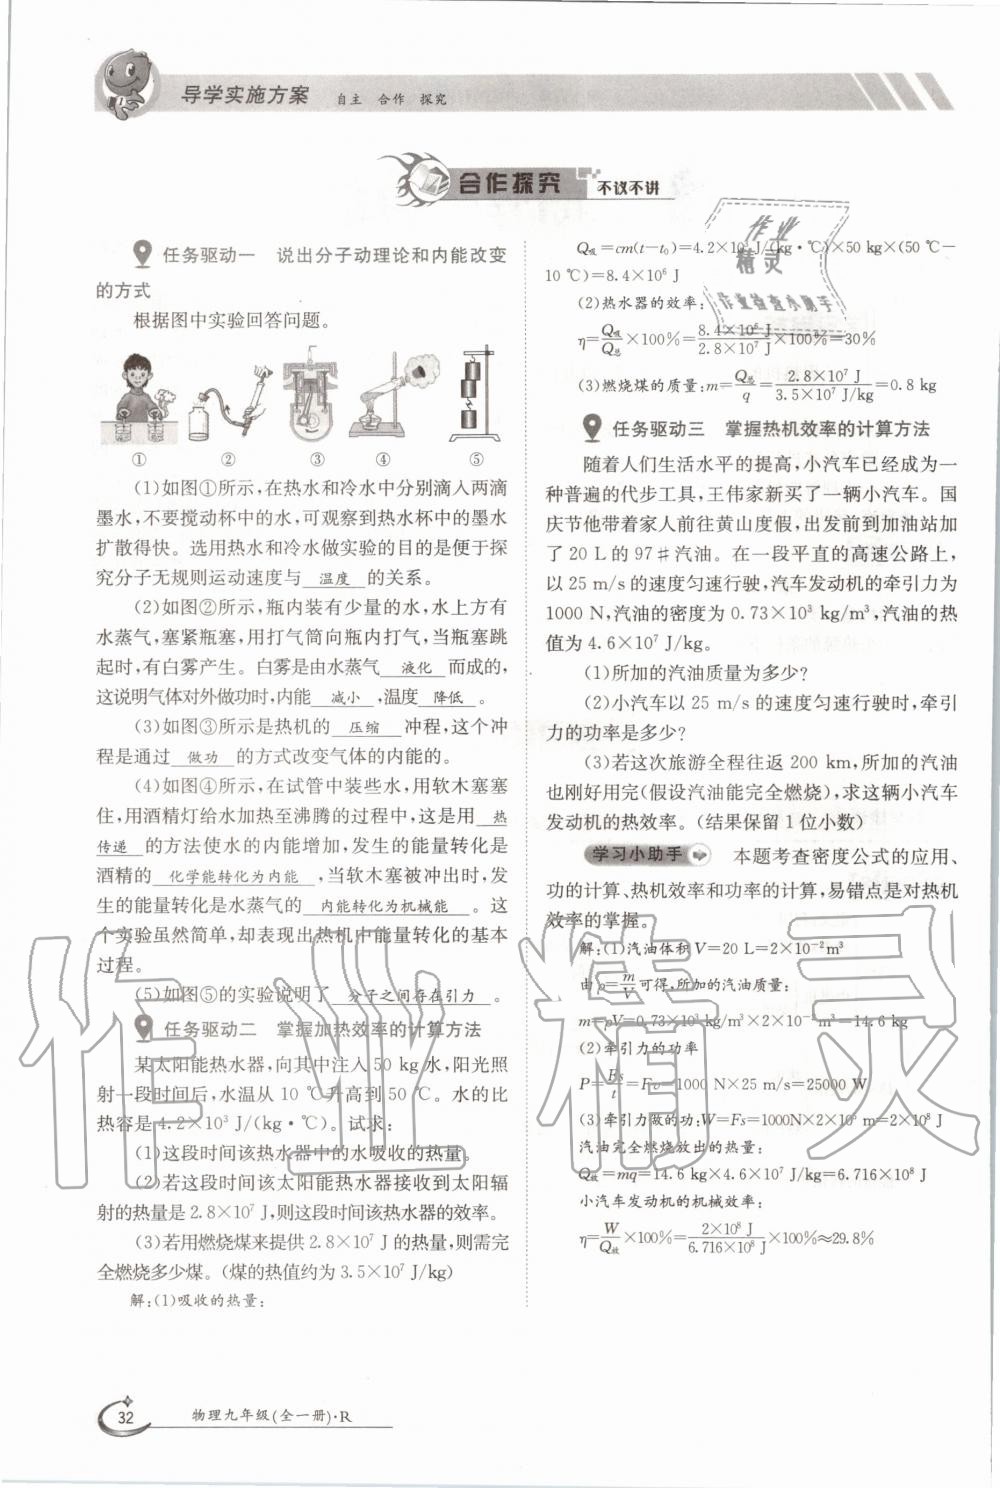 导学实施方案 自主 合作 探究
合作探究 不议不讲
任务驱动一 说出分子动理论和内能改变
的方式
根据图中实验回答问题。
① ② ③ ④ ⑤
(1)如图①所示,在热水和冷水中分别滴入两滴
墨水,不要搅动杯中的水,可观察到热水杯中的墨水
扩散得快。选用热水和冷水做实验的目的是便于探
究分子无规则运动速度与 温度 的关系。
(2)如图②所示,瓶内装有少量的水,水上方有
水蒸气,塞紧瓶塞,用打气筒向瓶内打气,当瓶塞跳
起时,有白雾产生。白雾是由水蒸气 液化 而成的,
这说明气体对外做功时,内能 减小 ,温度 降低 。
(3)如图③所示是热机的 压缩 冲程,这个冲
程是通过 做功 的方式改变气体的内能的。
(4)如图④所示,在试管中装些水,用软木塞塞
住,用酒精灯给水加热至沸腾的过程中,这是用 热
传递 的方法使水的内能增加,发生的能量转化是
酒精的 化学能转化为内能 ,当软木塞被冲出时,发
生的能量转化是水蒸气的 内能转化为机械能 。这
个实验虽然简单,却表现出热机中能量转化的基本
过程。
(5)如图⑤的实验说明了 分子之间存在引力 。
任务驱动二 掌握加热效率的计算方法
某太阳能热水器,向其中注入50 kg水,阳光照
射一段时间后,水温从10 ℃升高到50 ℃。水的比
热容是4.2×10³ J/(kg·℃)。试求:
(1)这段时间该热水器中的水吸收的热量。
(2)若这段时间该太阳能热水器接收到太阳辐
射的热量是2.8×10⁷ J,则这段时间该热水器的效率。
(3)若用燃烧煤来提供2.8×10⁷ J的热量,则需完
全燃烧多少煤。(煤的热值约为3.5×10⁷ J/kg)
解:(1)吸收的热量:
Q吸=cm(t-t₀)=4.2×10³ J/(kg·℃)×50 kg×(50 ℃-
10 ℃)=8.4×10⁶ J
(2)热水器的效率:
η=Q吸/Q总×100%=8.4×10⁶ J/2.8×10⁷ J×100%=30%
(3)燃烧煤的质量:m=Q总/q=2.8×10⁷ J/3.5×10⁷ J/kg=0.8 kg
任务驱动三 掌握热机效率的计算方法
随着人们生活水平的提高,小汽车已经成为一
种普遍的代步工具,王伟家新买了一辆小汽车。国
庆节他带着家人前往黄山度假,出发前到加油站加
了20 L的97#汽油。在一段平直的高速公路上,
以25 m/s的速度匀速行驶,汽车发动机的牵引力为
1000 N,汽油的密度为0.73×10³ kg/m³,汽油的热
值为4.6×10⁷ J/kg。
(1)所加的汽油质量为多少?
(2)小汽车以25 m/s的速度匀速行驶时,牵引
力的功率是多少?
(3)若这次旅游全程往返200 km,所加的汽油
也刚好用完(假设汽油能完全燃烧),求这辆小汽车
发动机的热效率。(结果保留1位小数)
学习小助手 本题考查密度公式的应用、
功的计算、热机效率和功率的计算,易错点是对热机
效率的掌握。
解:(1)汽油体积V=20 L=2×10⁻²m³
由ρ=m/V可得,所加的汽油质量:
m=ρV=0.73×10³ kg/m³×2×10⁻² m³=14.6 kg
(2)牵引力的功率
P=Fs/t=Fv=1000 N×25 m/s=25000 W
(3)牵引力做的功:W=Fs=1000N×2×10⁵ m=2×10⁸ J
汽油完全燃烧放出的热量:
Q放=mq=14.6 kg×4.6×10⁷ J/kg=6.716×10⁸ J
小汽车发动机的机械效率:
η=W/Q放×100%=2×10⁸ J/6.716×10⁸ J×100%≈29.8%
作业
精灵
作业检查小助手
作业精灵
32 物理九年级(全一册)·R